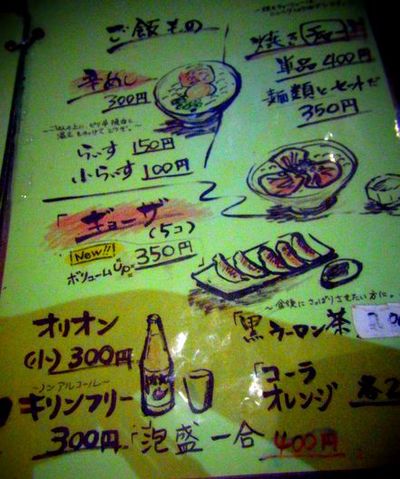 ご飯もの
辛めし
300円
らいす 150円
小らいす 100円
「ギョーザ
(5コ)
New!! 350円
ボリュームup
焼き
単品 400円
麺類とセットだ
350円
〜食後にさっぱりさせたい方に。
「黒ウーロン茶
オリオン
(小)300円
〜ノンアルコール〜
キリンフリー
300円
「コーラ
オレンジ
「泡盛 一合 400円